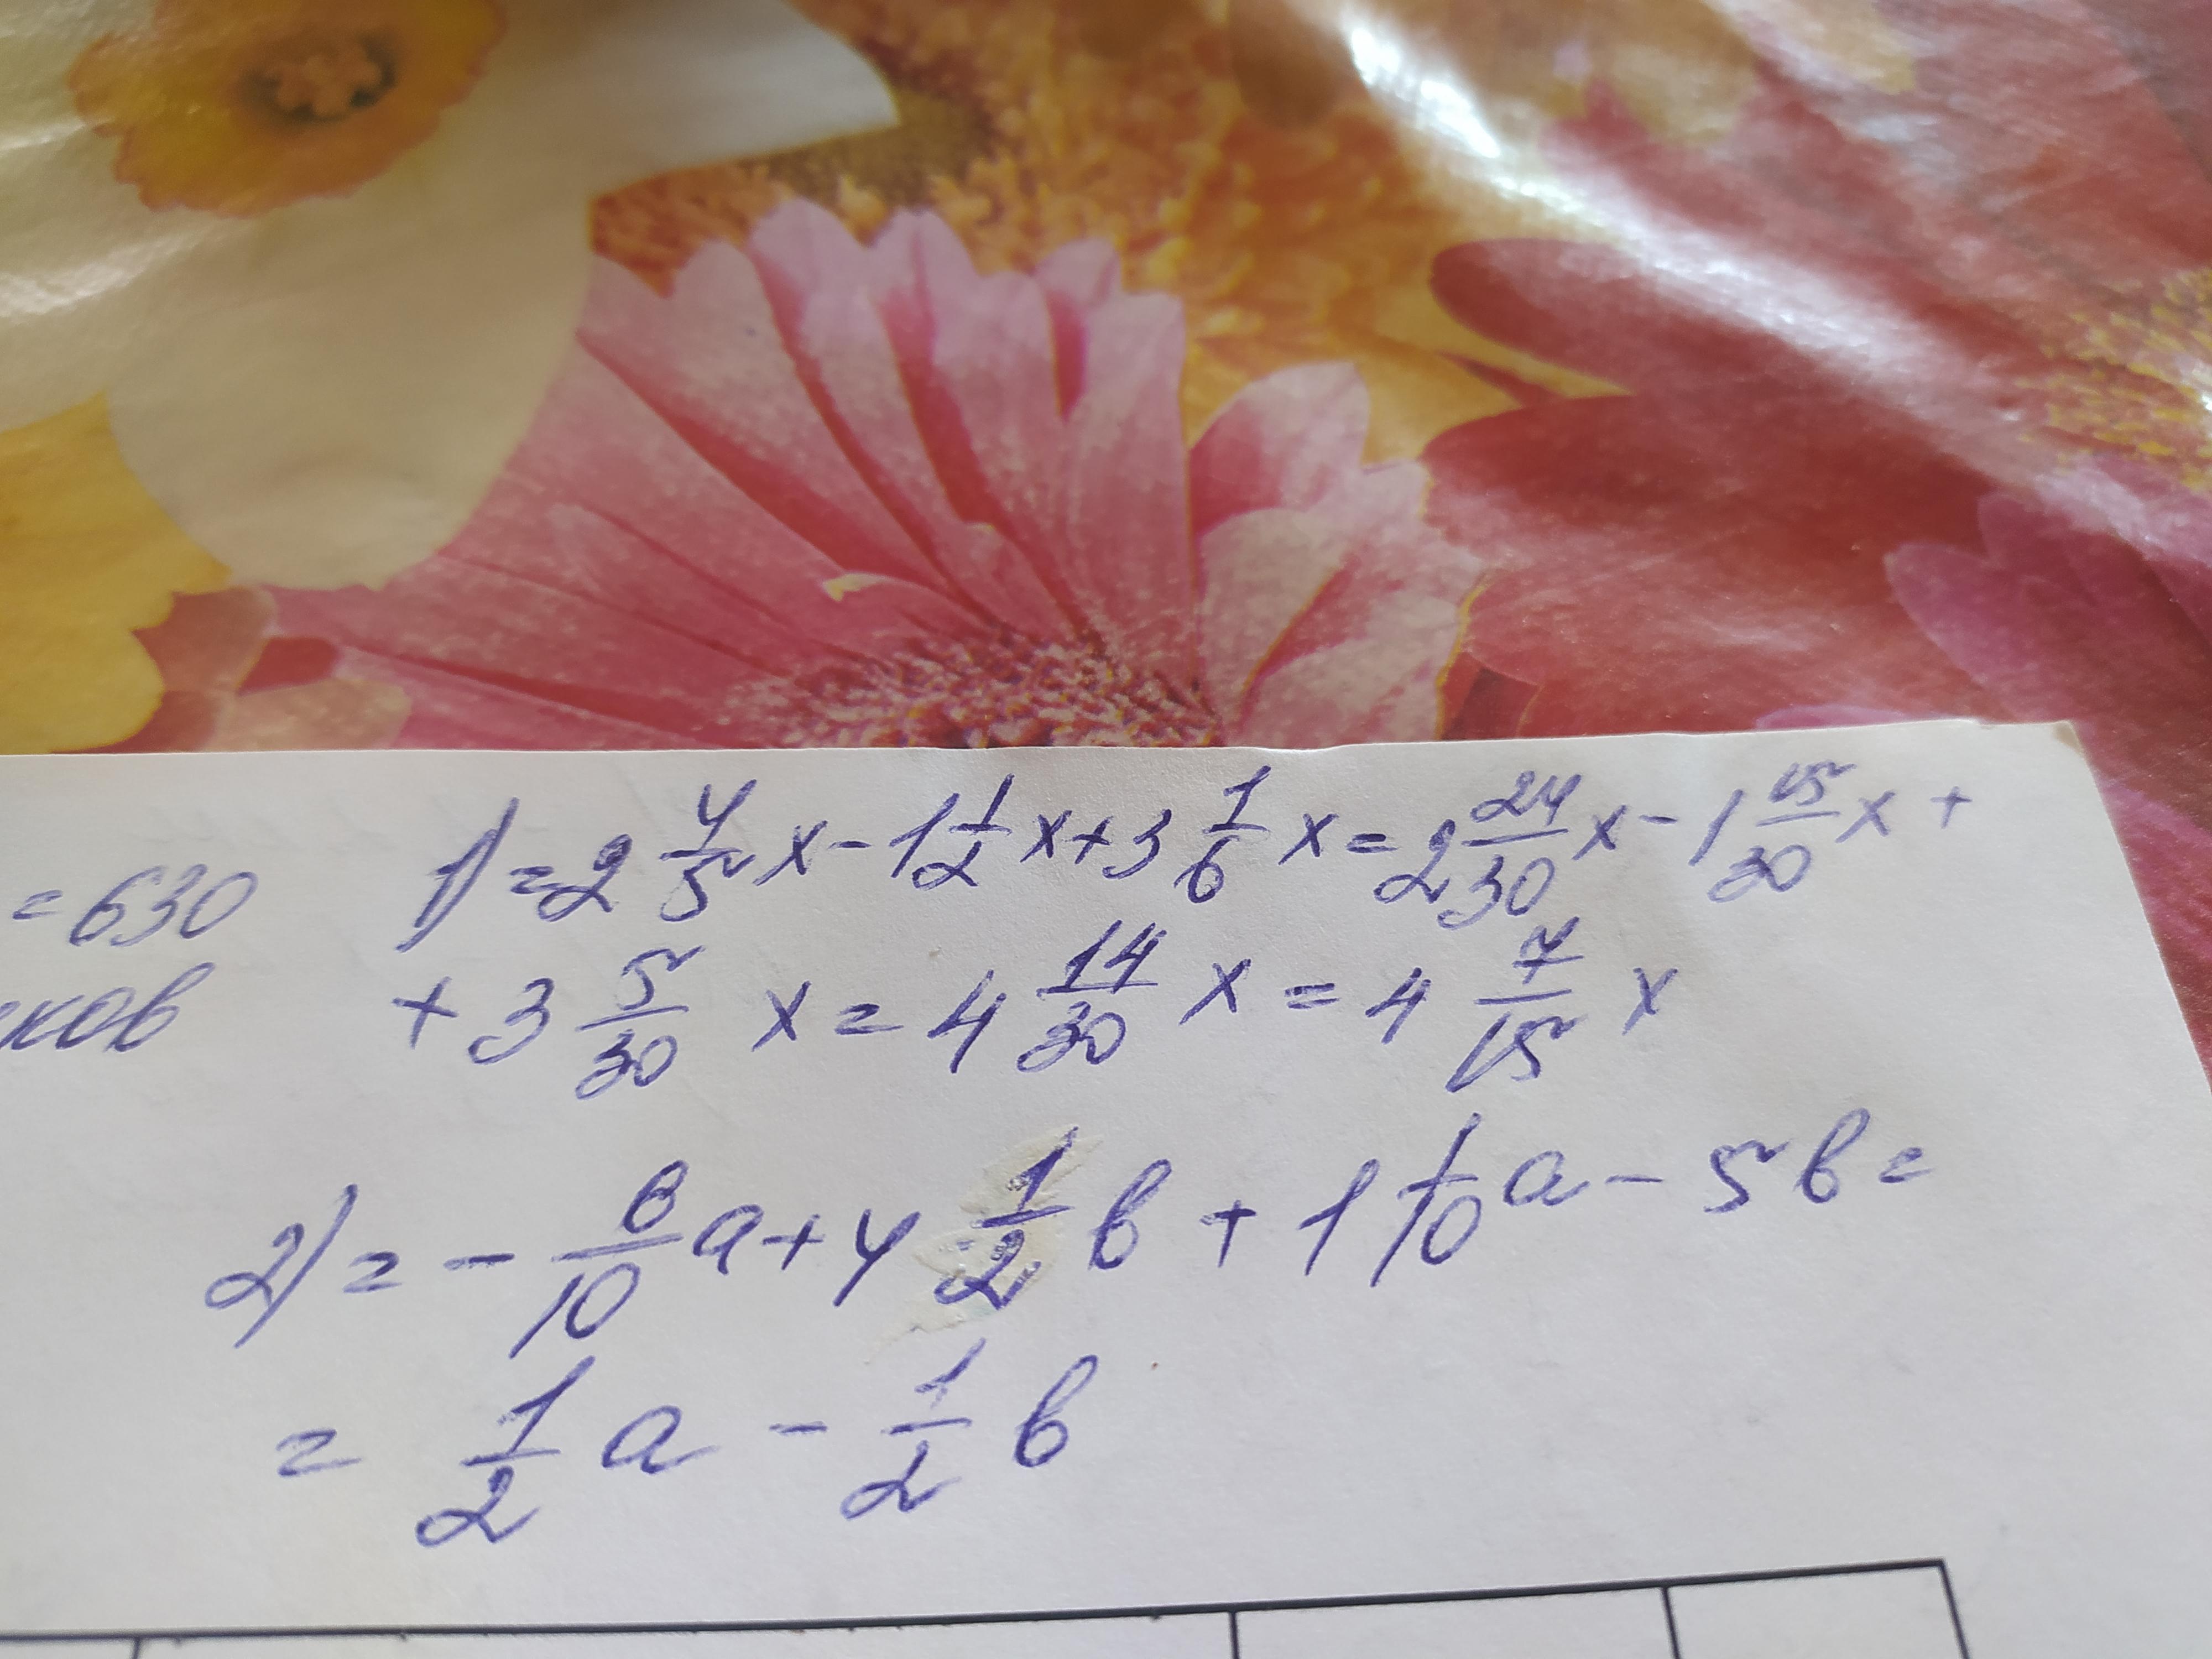 = 630
ков
1) = 2 4/5 x - 1 1/2 x + 3 1/6 x = 2 24/30 x - 1 15/30 x +
+ 3 5/30 x = 4 14/30 x = 4 7/15 x
2) = - 6/10 a + 4 1/2 b + 1 1/10 a - 5 b =
= 1/2 a - 1/2 b